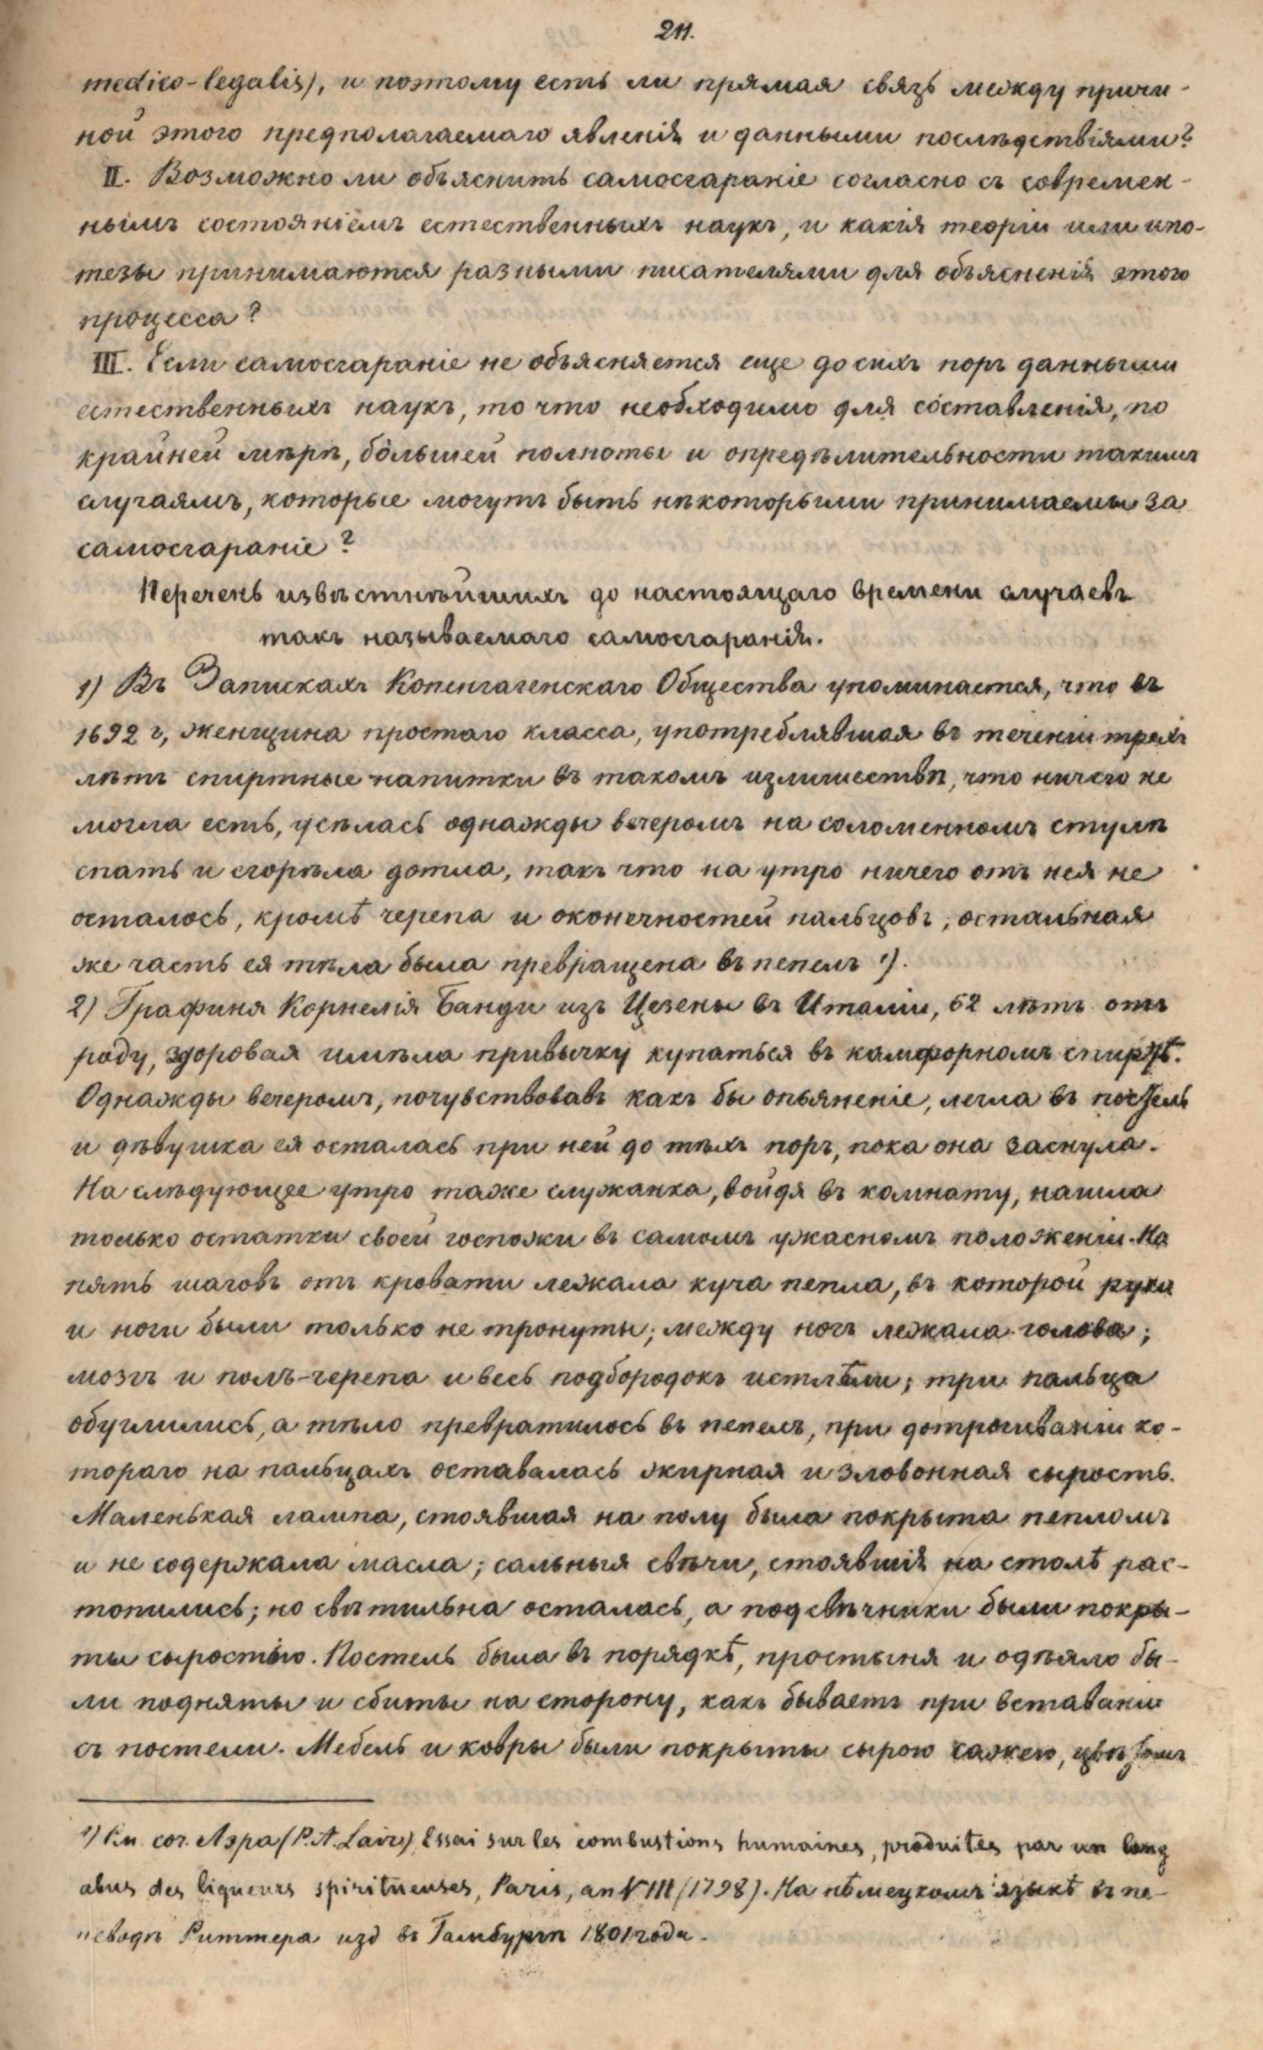 211.
medico-legalis), и поэтому есть ли прямая связь между причи-
ной этого предполагаемаго явленія и данными послѣдствіями?
II. Возможно ли объяснить самосгараніе согласно съ современ-
нымъ состояніемъ естественныхъ наукъ, и какія теоріи или ипо-
тезы принимаются разными писателями для объясненія этого
процесса?
III. Если самосгараніе не объясняется еще до сихъ поръ данными
естественныхъ наукъ, то что необходимо для составленія, по
крайней мѣрѣ, бо́льшей полноты и опредѣлительности такимъ
случаямъ, которые могутъ быть нѣкоторыми принимаемы за
самосгараніе?
Перечень извѣстнѣйшихъ до настоящаго времени случаевъ
такъ называемаго самосгаранія.
1) Въ Запискахъ Копенгагенскаго Общества упоминается, что въ
1692 г, женщина простаго класса, употреблявшая въ теченіи трехъ
лѣтъ спиртные напитки въ такомъ излишествѣ, что ничего не
могла есть, усѣлась однажды вечеромъ на соломенномъ стулѣ
спать и сгорѣла дотла, такъ что на утро ничего отъ нея не
осталось, кромѣ черепа и оконечностей пальцовъ; остальная
же часть ея тѣла была превращена въ пепелъ ¹).
2) Графиня Корнелія Банди изъ Цезены въ Италіи, 62 лѣтъ отъ
роду, здоровая имѣла привычку купаться въ камфорномъ спиртѣ.
Однажды вечеромъ, почувствовавъ какъ бы опьяненіе, легла въ постель
и дѣвушка ея осталась при ней до тѣхъ поръ, пока она заснула.
На слѣдующее утро таже служанка, войдя въ комнату, нашла
только остатки своей госпожи въ самомъ ужасномъ положеніи. На
пять шаговъ отъ кровати лежала куча пепла, въ которой руки
и ноги были только не тронуты; между ногъ лежала голова;
мозгъ и полъ-черепа и весь подбородокъ истлѣли; три пальца
обуглились, а тѣло превратилось въ пепелъ, при дотрогиваніи ко-
тораго на пальцахъ оставалась жирная и зловонная сырость.
Маленькая лампа, стоявшая на полу была покрыта пепломъ
и не содержала масла; сальныя свѣчи, стоявшія на столѣ рас-
топились; но свѣтильна осталась, а подсвѣчники были покры-
ты сыростію. Постель была въ порядкѣ, простыня и одѣяло бы-
ли подняты и сбиты на сторону, какъ бываетъ при вставаніи
съ постели. Мебель и ковры были покрыты сырою сажею, цвѣтомъ
¹) См. соч. Лэра (P. A. Lair) Essai sur les combustions humaines, produites par un long
abus des liqueurs spiritueuses, Paris, an VIII (1798). На нѣмецкомъ языкѣ въ пе-
реводѣ Риттера изд въ Гамбургѣ 1801 года.